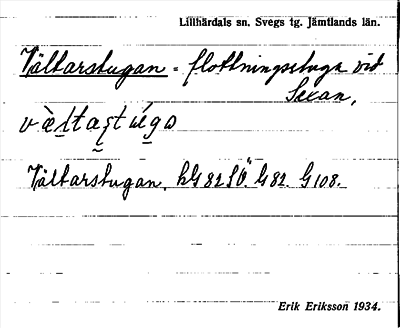 Lillhärdals sn. Svegs tg. Jämtlands län.
Vältarstugan = flottningsstuga vid
Sexan,
Vältarstugan. hG 82 SÖ. G 82. G 108.
Erik Eriksson 1934.